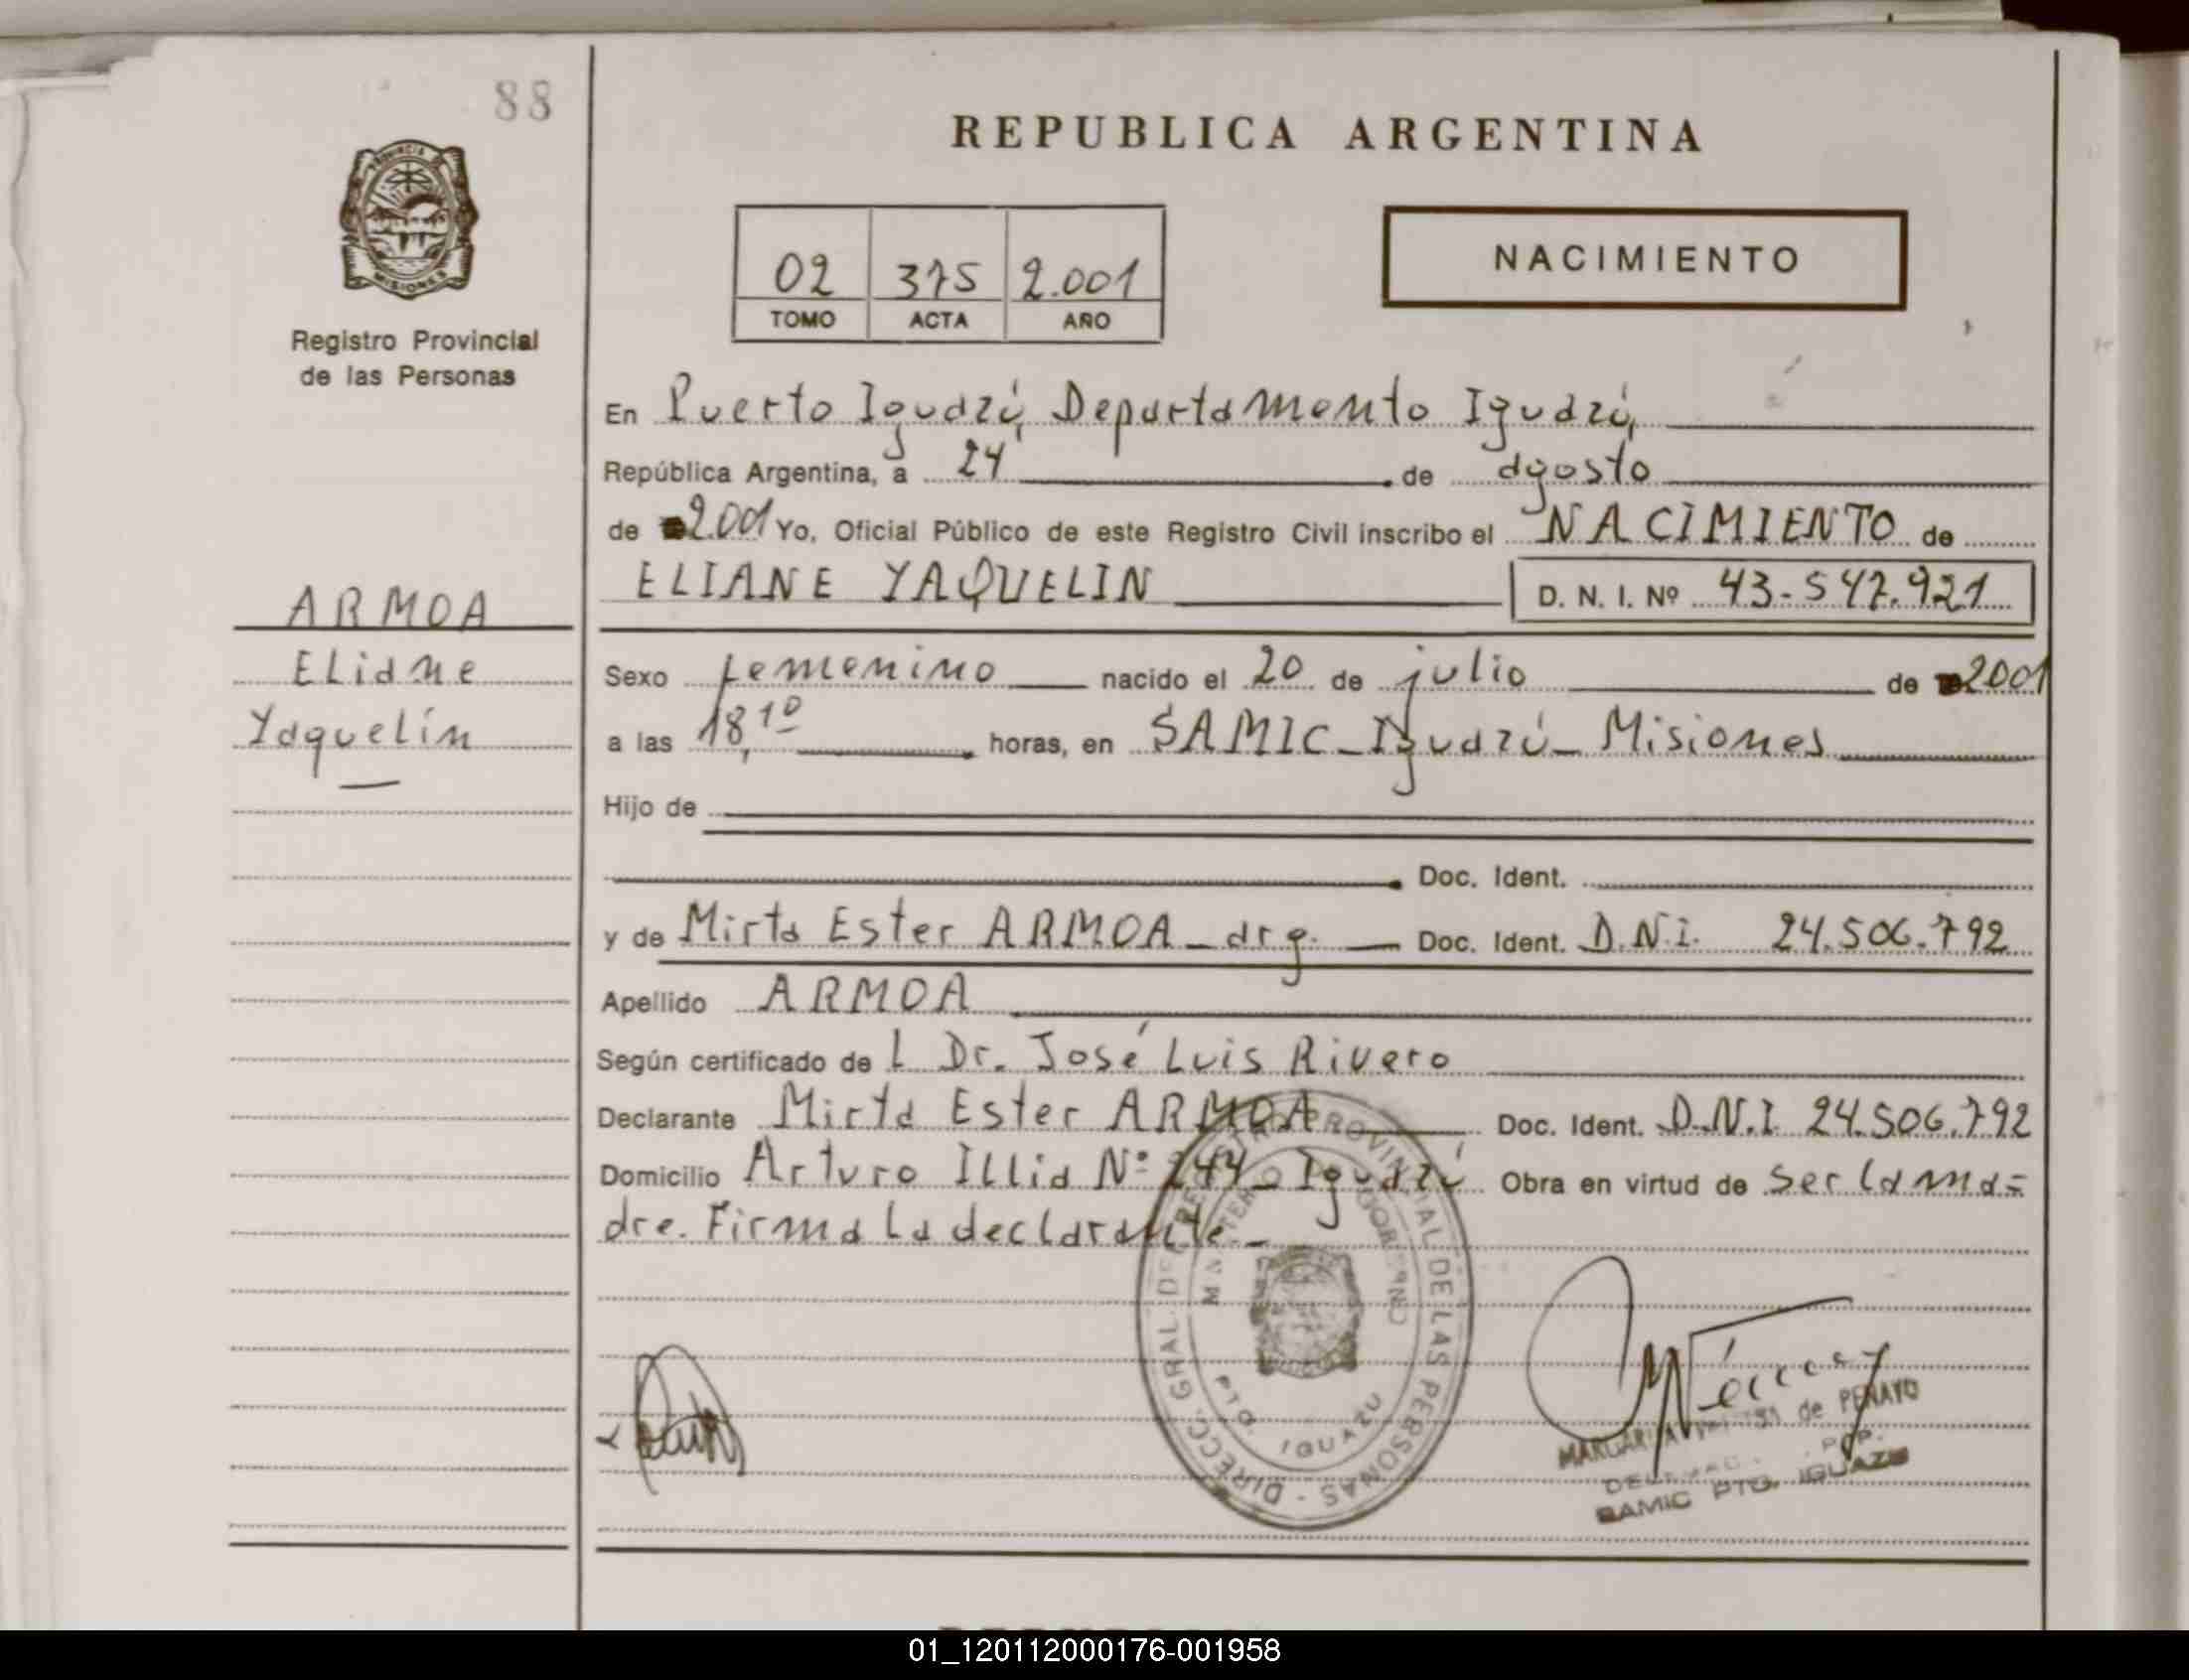 88
REPUBLICA ARGENTINA
PROVINCIA DE
MISIONES
Registro Provincial
de las Personas
02 375 2.001
TOMO ACTA AÑO
NACIMIENTO
En Puerto Iguazú, Departamento Iguazú,
República Argentina, a 24 de agosto
de 2.001 Yo, Oficial Público de este Registro Civil inscribo el NACIMIENTO de
ELIANE YAQUELIN D. N. I. Nº 43-547.921
ARMOA
Eliane
Yaquelin
Sexo femenino nacido el 20 de julio de 2001
a las 18,10 horas, en SAMIC-Iguazú-Misiones
Hijo de
Doc. Ident.
y de Mirta Ester ARMOA - arg. Doc. Ident. D.N.I. 24.506.792
Apellido ARMOA
Según certificado de L Dr. José Luis Rivero
Declarante Mirta Ester ARMOA Doc. Ident. D.N.I 24.506.792
Domicilio Arturo Illia Nº 244 - Iguazú Obra en virtud de ser la ma=
dre. Firma la declarante.-
DIRECC. GRAL. DE REGISTRO PROVINCIAL DE LAS PERSONAS -
MINISTERIO GOBIERNO
PTO. IGUAZU
MARGARITA de PENAYO
SAMIC PTO. IGUAZU
01_120112000176-001958